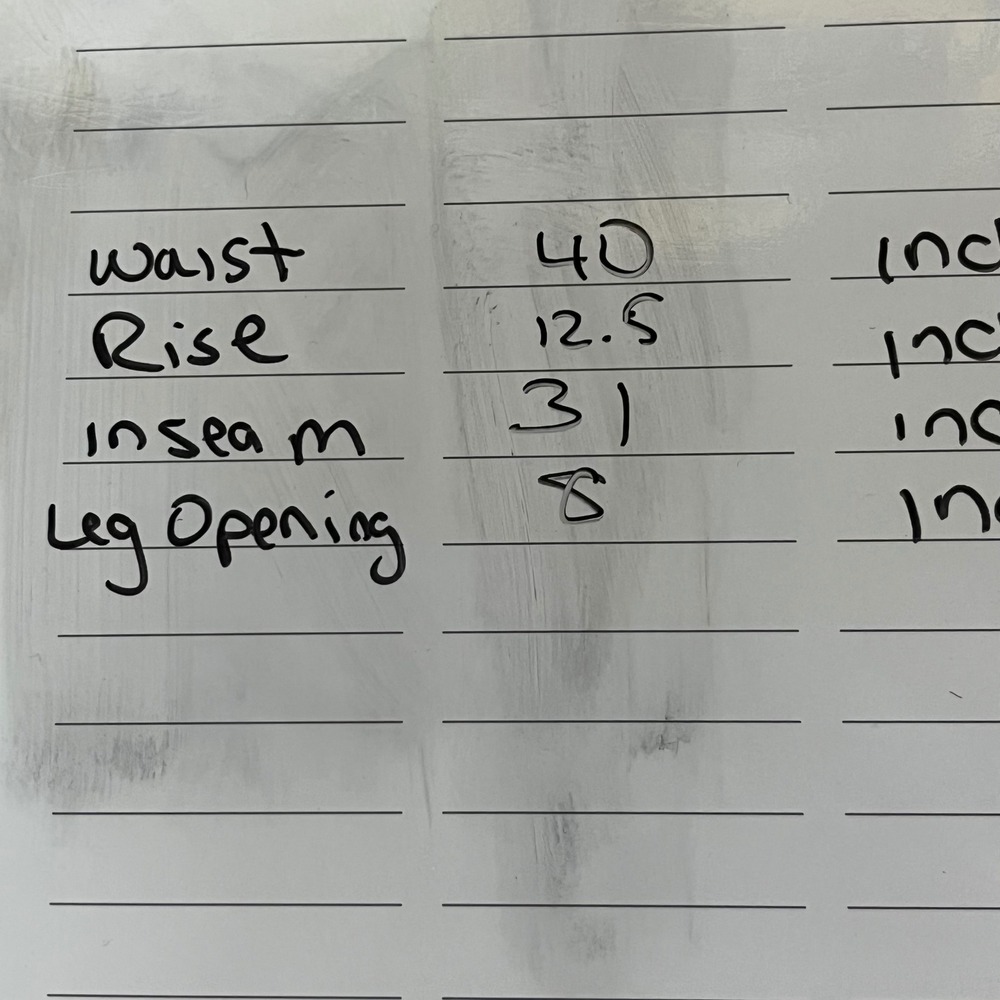 Waist 40 Inc
Rise 12.5 Inc
inseam 31 inc
Leg Opening 8 In